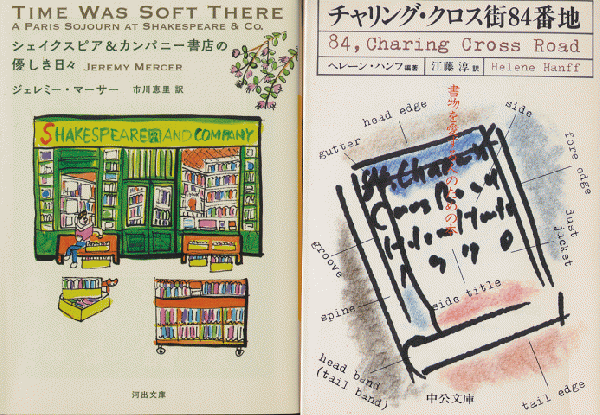 TIME WAS SOFT THERE
A PARIS SOJOURN AT SHAKESPEARE & CO.
シェイクスピア&カンパニー書店の
優しき日々 JEREMY MERCER
ジェレミー・マーサー 市川恵里 訳
SHAKESPEARE AND COMPANY
河出文庫
チャリング・クロス街84番地
84, Charing Cross Road
ヘレーン・ハンフ 編著 江藤淳 訳 Helene Hanff
書物を愛する人のための本
gutter
head edge
side
fore edge
dust
jacket
groove
spine
side title
head band
(tail band)
tail edge
84, Charing
Cross Road
Helene Hanff
中公文庫